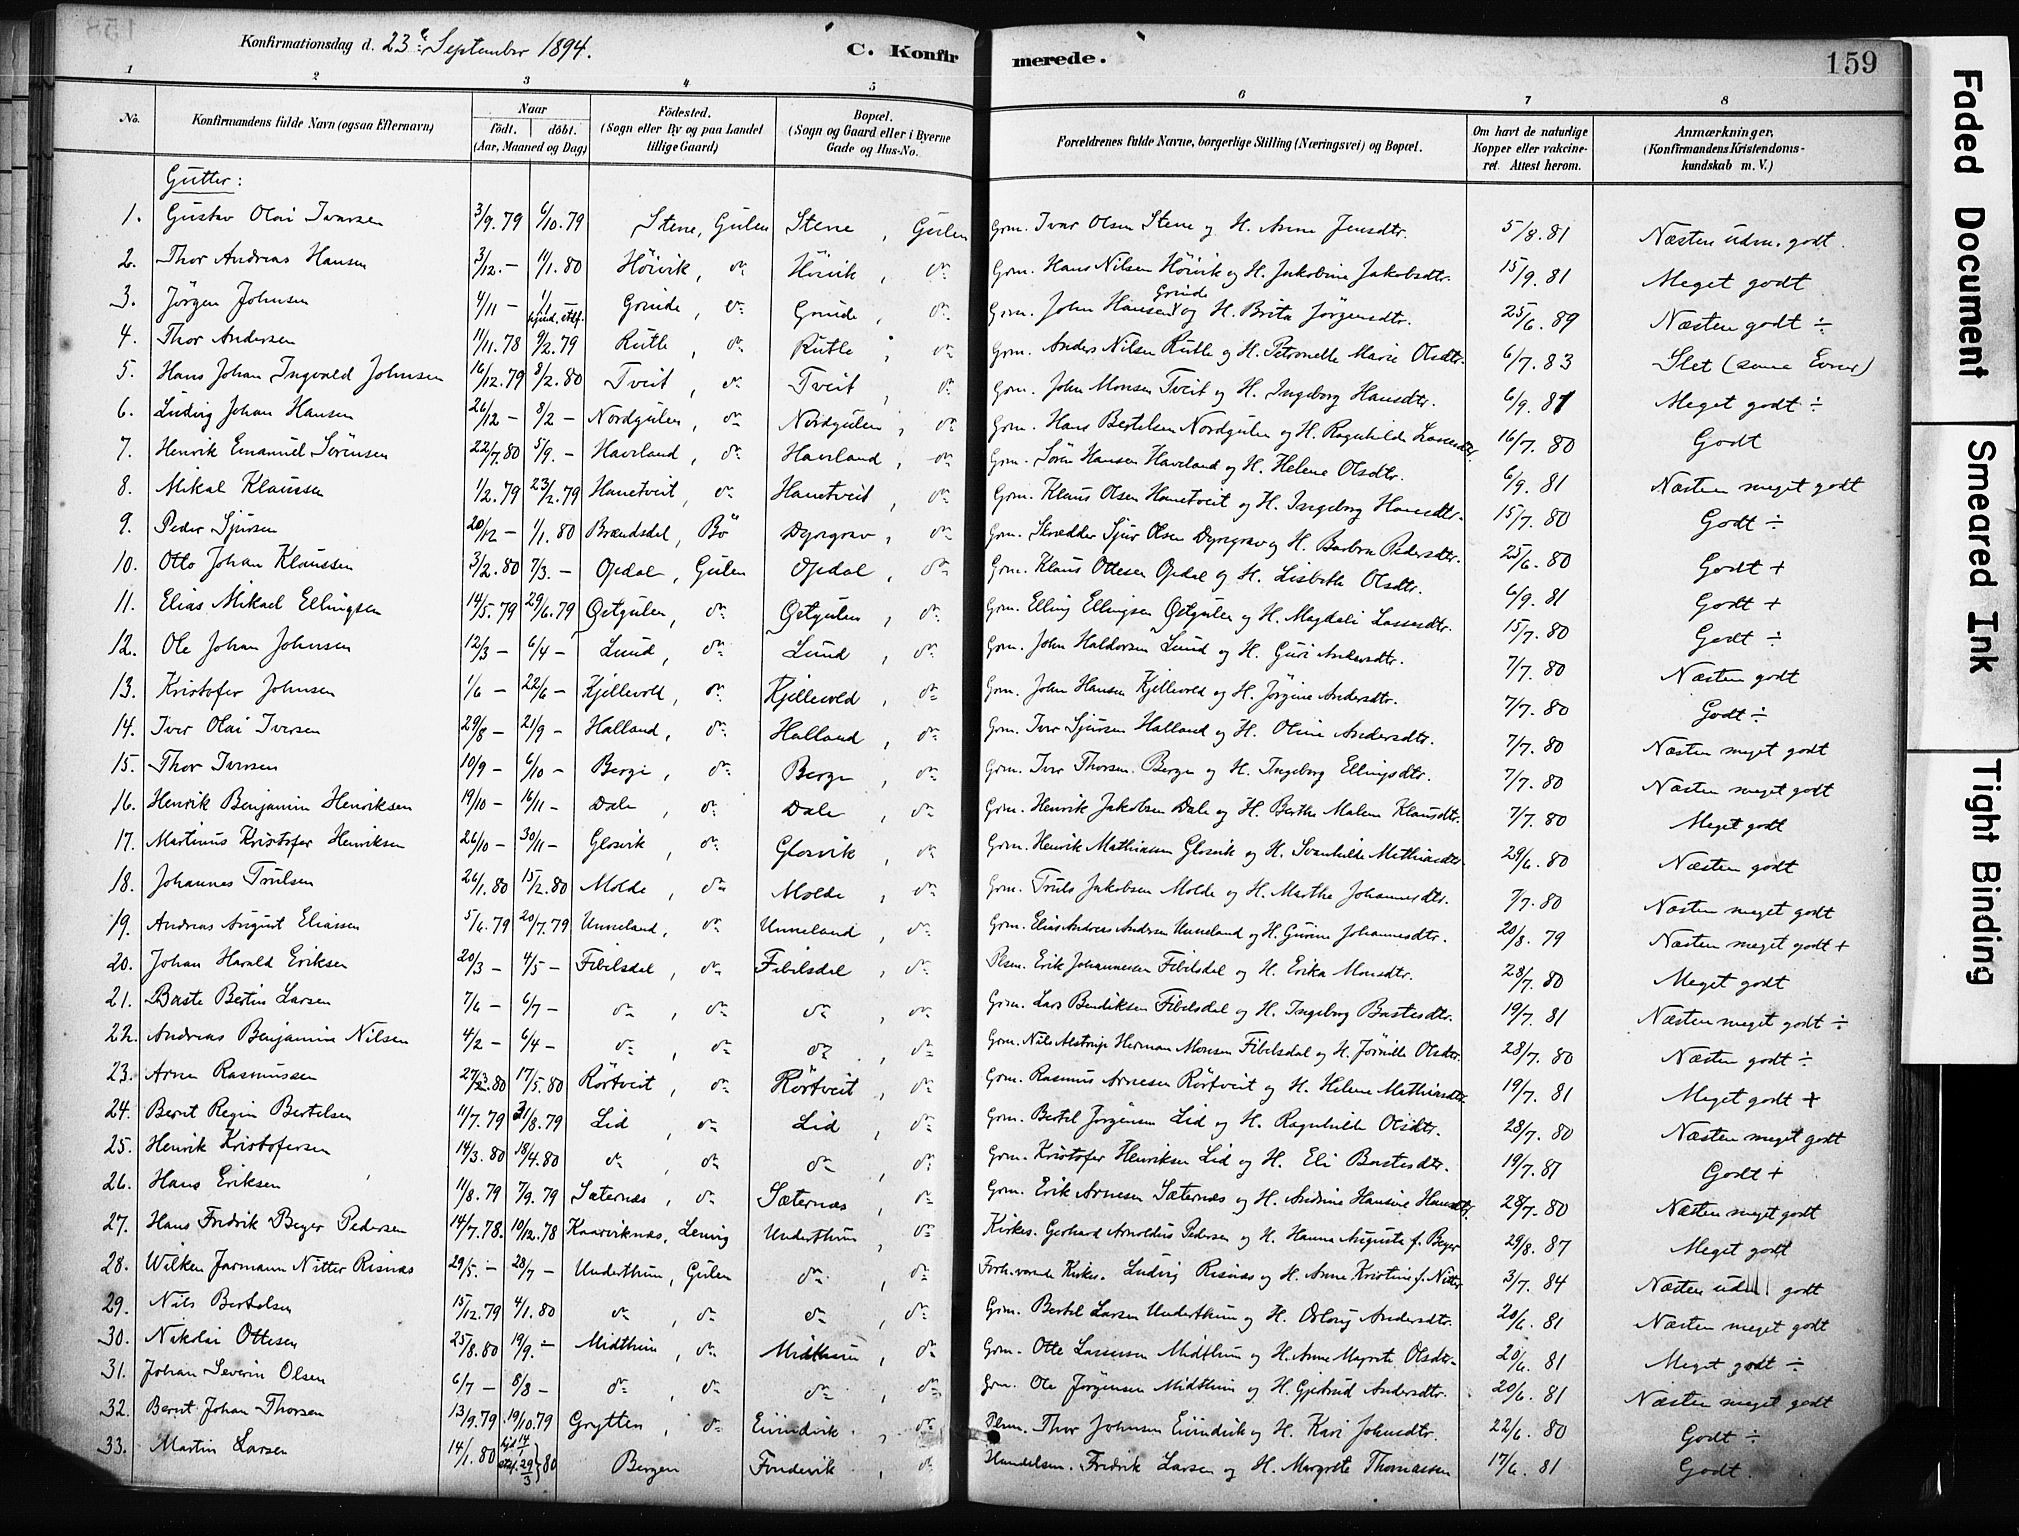 Konfirmationsdag d. 23de September 1894. C. Konfirmerede. 159
1 2 3 4 5 6 7 8
No. Konfirmandens fulde Navn (ogsaa Efternavn) Naar födt. döbt. (Aar, Maaned og Dag) Födested. (Sogn eller By og paa Landet tillige Gaard) Bopæl. (Sogn og Gaard eller i Byerne Gade og Hus-No. Forældrenes fulde Navne, borgerlige Stilling (Næringsvei) og Bopæl. Om havt de naturlige Kopper eller vakcineret. Attest herom. Anmærkninger. (Konfirmandens Kristendomskundskab m. V.)
Gutter:
1. Gustav Olai Ivarsen 3/9.79 6/10.79 Stene, Gulen Stene, Gulen Grm. Ivar Olsen Stene og H. Anne Jensdtr. 5/8.81 Næsten udm. godt.
2. Thor Andreas Hansen 3/12.- 11/1.80 Höivik, do Höivik, do Grm. Hans Nilsen Höivik og H. Jakobine Jakobsdtr. 15/9.81 Meget godt
3. Jörgen Johnsen 4/11 - 1/1 Grinde, do Grinde, do Grm. John Hansen Grinde og H. Brita Jörgensdtr. 25/6.89 Næsten godt ÷
4. Thor Andersen 11/11.78 9/2.79 Rutle, do Rutle, do Grm. Anders Nilsen Rutle og H. Petronelle Marie Olsdtr. 6/7.83 Slet (smaa Evner)
5. Hans Johan Ingvald Johnsen 16/12.79 8/2.80 Tveit, do Tveit, do Grm. John Monsen Tveit og H. Ingeborg Hansdtr. 6/9.81 Meget godt ÷
6. Ludvig Johan Hansen 26/12 - 8/2 - Nordgulen, do Nordgulen, do Grm. Hans Bertelsen Nordgulen og H. Ragnhilde Lassesdtr. 16/7.80 Godt
7. Henrik Emanuel Sörensen 22/7.80 5/9.- Haveland, do Haveland, do Grm. Sören Hansen Haveland og H. Helene Olsdtr. 6/9.81 Næsten meget godt
8. Mikal Klaussen 1/2.79 23/2.79 Hanetveit, do Hanetveit, do Grm. Klaus Olsen Hanetveit og H. Ingeborg Hansdtr. 15/7.80 Godt ÷
9. Peder Sjursen 20/12 - 1/1.80 Brændsdal, Bö Dyrgrav, do Grm. Skrædder Sjur Olsen Dyrgrav og H. Barbra Pedersdtr. 25/6.80 Godt +
10. Otto Johan Klaussen 3/2.80 7/3.- Opdal, Gulen Opdal, do Grm. Klaus Ottesen Opdal og H. Lisbeth Olsdtr. 6/9.81 Godt +
11. Elias Mikael Ellingsen 14/5.79 29/6.79 Östgulen, do Östgulen, do Grm. Elling Ellingsen Östgulen og H. Magdeli Lassesdtr. 15/7.80 Godt ÷
12. Ole Johan Johnsen 12/3 - 6/4 - Lund, do Lund, do Grm. John Haldorsen Lund og H. Guri Andersdtr. 7/7.80 Næsten godt
13. Kristofer Johnsen 1/6 - 22/6 - Kjellevold, do Kjellevold, do Grm. John Hansen Kjellevold og H. Jörgine Andersdtr. 7/7.80 Godt ÷
14. Iver Olai Iversen 29/8 - 21/9 - Halland, do Halland, do Grm. Iver Sjursen Halland og H. Oline Andersdtr. 7/7.80 Næsten meget godt
15. Thor Iversen 10/9 - 6/10 - Berge, do Berge, do Grm. Iver Thorsen Berge og H. Ingeborg Ellingsdtr. 7/7.80 Næsten meget godt
16. Henrik Benjamin Henriksen 19/10 - 16/11 - Dale, do Dale, do Grm. Henrik Jakobsen Dale og H. Berthe Malene Klausdtr. 7/7.80 Meget godt
17. Martinus Kristofer Henriksen 26/10 - 30/11 - Glosvik, do Glosvik, do Grm. Henrik Mathiassen Glosvik og H. Svanhilde Mathiasdtr. 29/6.80 Næsten godt
18. Johannes Trulsen 26/1.80 15/2.80 Molde, do Molde, do Grm. Truls Jakobsen Molde og H. Marthe Johannesdtr. 7/7.80 Næsten meget godt
19. Andreas August Eliassen 5/6.79 20/7.79 Unneland, do Unneland, do Grm. Elias Andreas Andersen Unneland og H. Gurine Johannesdtr. 20/8.79 Næsten meget godt +
20. Johan Harald Eriksen 20/3 - 4/5 - Fibilsdal, do Fibilsdal, do Plsm. Erik Johannessen Fibilsdal og H. Erika Monsdtr. 28/7.80 Meget godt
21. Baste Bertin Larsen 7/6 - 6/7 - do, do do, do Grm. Lars Bendiksen Fibelsdal og H. Ingeborg Bastesdtr. 19/7.81 Næsten meget godt ÷
22. Andreas Benjamin Nilsen 4/2 - 6/4 - do, do do, do Grm. Nils Alstrup Herman Monsen Fibelsdal og H. Jörnille Olsdtr. 28/7.80 Næsten godt ÷
23. Arne Rasmussen 27/3.80 17/5.80 Rörtveit, do Rörtveit, do Grm. Rasmus Arnesen Rörtveit og H. Helene Mathiasdtr. 19/7.81 Meget godt +
24. Bernt Regin Bertelsen 11/7.79 31/8.79 Lid, do Lid, do Grm. Bertel Jörgensen Lid og H. Ragnhilde Olsdtr. 28/7.80 Næsten meget godt
25. Henrik Kristofersen 14/3.80 18/4.80 do do do, do Grm. Kristofer Henriksen Lid og H. Eli Bastesdtr. 19/7.81 Godt +
26. Hans Eriksen 11/8.79 7/9.79 Sæternæs, do Sæternæs, do Grm. Erik Arnesen Sæternæs og H. Andrine Hansine Hansdtr. 28/7.80 Næsten meget godt
27. Hans Fredrik Beyer Pedersen 14/7.78. 10/12.78 Kaarviknæs, Lenvig Underthun, do Kirkes. Gerhard Arnoldus Pedersen og H. Hanna Augusta f. Beyer 29/8.87 Meget godt
28. Wilken Jarmann Nitter Risnæs 29/5.- 28/7 - Underthun, Gulen do, do Forh.værende Kirkes. Ludvig Risnæs og H. Anne Kristine f. Nitter 3/7.84 Næsten udm. godt
29. Nils Bertelsen 15/12.79 4/1.80 do, do do, do Grm. Bertel Larsen Underthun og H. Oslaug Andersdtr. 20/6.81 Næsten meget godt
30. Nikolai Ottesen 25/8.80 19/9.- Midthun, do Midthun, do Grm. Otte Lassesen Midthun og H. Anne Magrete Olsdtr. 20/6.81 Meget godt ÷
31. Johan Severin Olsen 6/7 - 8/8 - do, do do, do Grm. Ole Jörgensen Midthun og H. Gjertrud Andersdtr. 20/6.81 Næsten meget godt
32. Bernt Johan Thorsen 13/9.79 19/10.79 Grytten, do Eivindvik, do Plsm. Thor Johnsen Eivindvik og H. Kari Johnsdtr. 22/6.80 Godt ÷
33. Martin Larsen 14/1.80 hjd 14/1 stdf. 29/3 } 80 Bergen Fondevik, do Handelsm. Fredrik Larsen og H. Margrete Thomassen 17/6.81 Godt.
Faded Document
Smeared Ink
Tight Binding